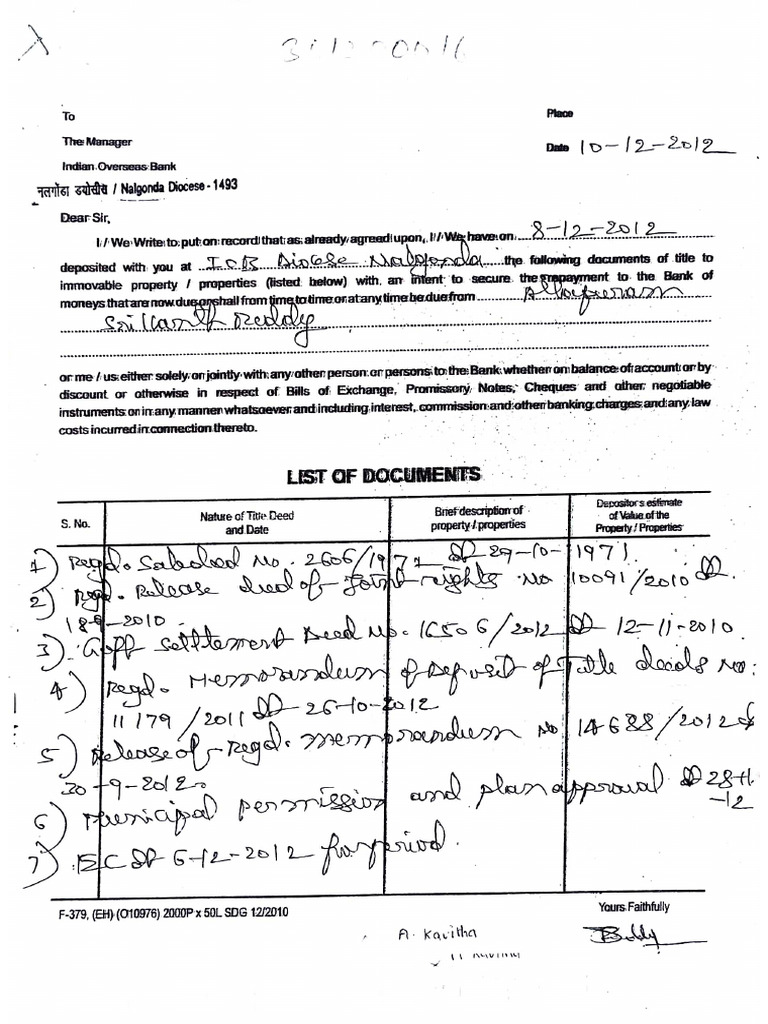 To
Place
The Manager
Date 10-12-2012
Indian Overseas Bank
नलगोंडा डयोसीस / Nalgonda Diocese - 1493
Dear Sir,
I / We Write to put on record that as already agreed upon, I / We have on 8-12-2012
deposited with you at I.O.B Diocese Nalgonda the following documents of title to
immovable property / properties (listed below) with an intent to secure the prepayment to the Bank of
moneys that are now due or shall from time to time or at any time be due from
Srikanth Reddy
or me / us either solely or jointly with any other person or persons to the Bank whether on balance of account or by
discount or otherwise in respect of Bills of Exchange, Promissory Notes, Cheques and other negotiable
instruments or in any manner whatsoever and including interest, commission and other banking charges and any law
costs incurred in connection thereto.
LIST OF DOCUMENTS
S. No.
Nature of Title Deed and Date
Brief description of property / properties
Depositor's estimate of Value of the Property / Properties
1) Regd. Saledeed No. 2606/1971 dt 29-10-1971.
2) Regd. Release deed of Joint rights No 10091/2010 dt.
18-9-2010.
3) Gift settlement Deed No. 16506/2012 dt 12-11-2010.
4) Regd. Memorandum of Deposit of Title deeds No:
11179/2011 dt 26-10-2012
5) Release of Regd. memorandum No 14688/2012 dt
30-9-2012.
6) Municipal permission and plan approval dt 28-11
-12
7) EC dt 6-12-2012 for period.
F-379, (EH) (O10976) 2000P x 50L SDG 12/2010
Yours Faithfully
A. Kavitha